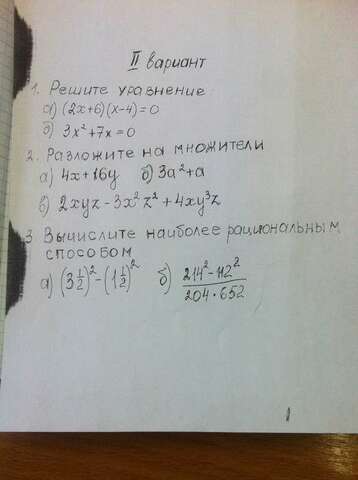 II вариант
1. Решите уравнение:
а) (2x+6)(x-4)=0
б) 3x²+7x=0
2. Разложите на множители
а) 4x+16y б) 3a²+a
в) 2xyz-3x²z²+4xy³z
3 Вычислите наиболее рациональным
способом
а) (3 1/2)²-(1 1/2)² б) (214²-112²)/(204·652)